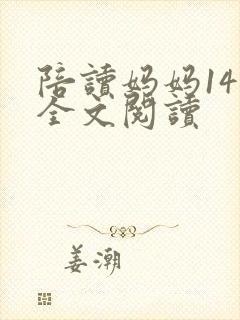 陪讀妈妈14
全文閱讀
姜潮